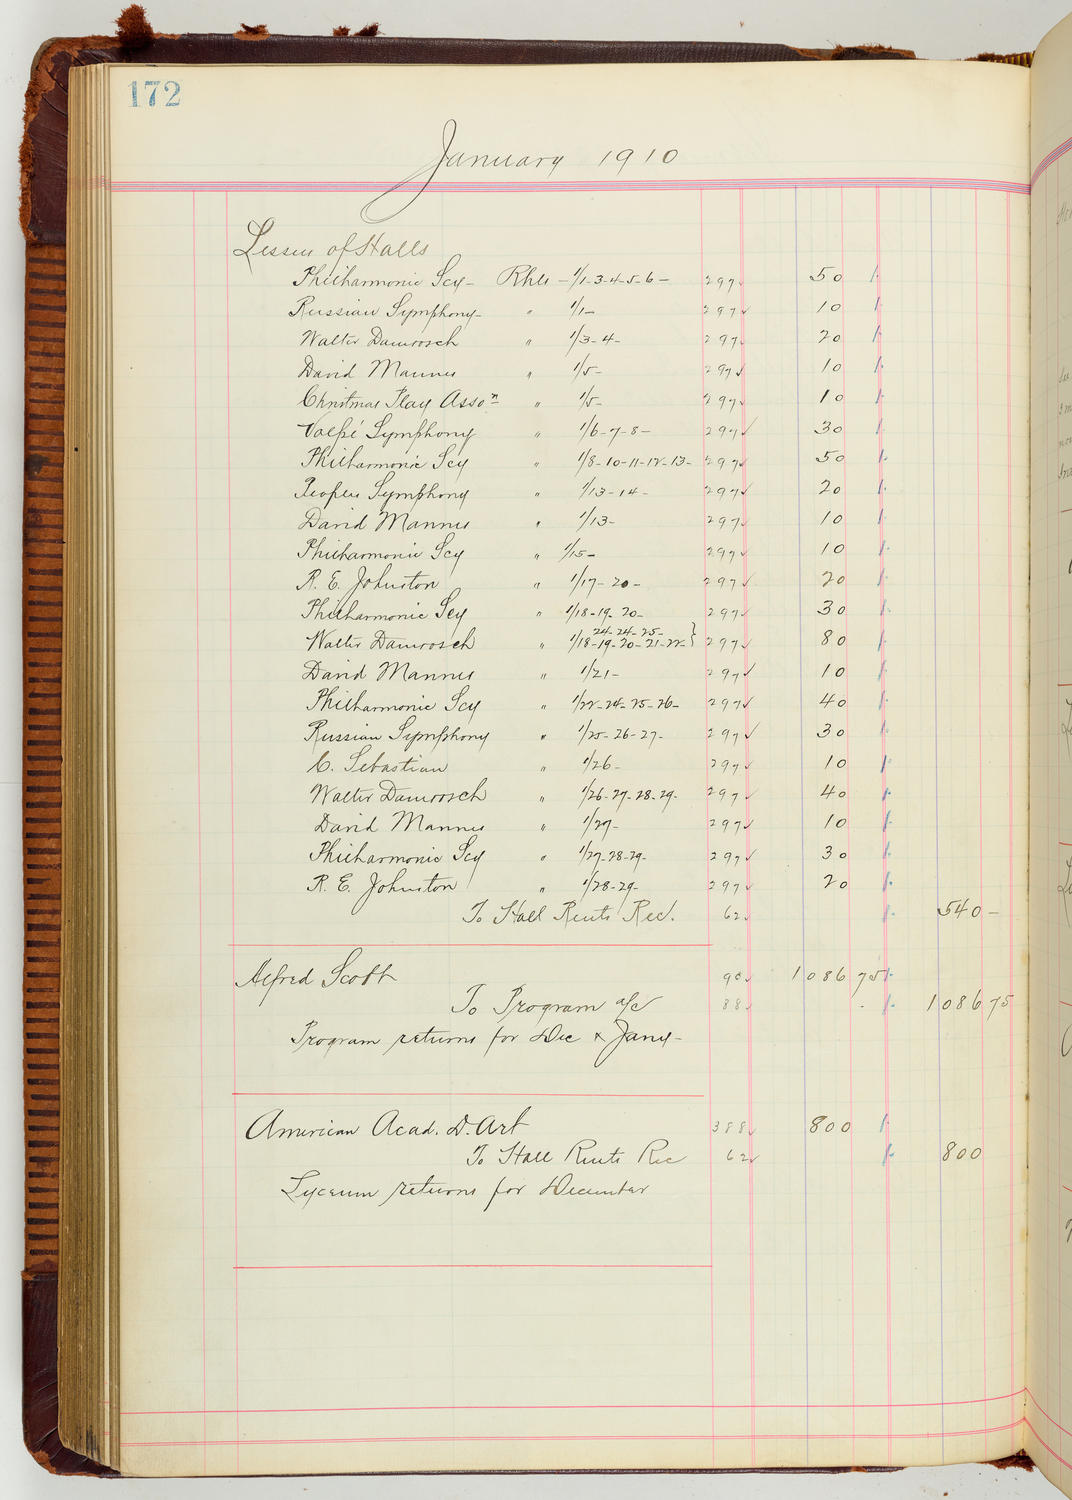 172
January 1910
Lessees of Halls
Philharmonic Scy - Rhls - 1/1-3-4-5-6 - 297 50
Russian Symphony - " 1/1 - 297 10
Walter Damrosch " 1/3-4- 297 20
David Mannes " 1/5- 297 10
Christmas Play Asso.n " 1/5- 297 10
Volpé Symphony " 1/6-7-8- 297 30
Philharmonic Scy " 1/8-10-11-12-13- 297 50
Peoples Symphony " 1/13-14- 297 20
David Mannes " 1/13- 297 10
Philharmonic Scy " 1/15- 297 10
R. E. Johnston " 1/17-20- 297 20
Philharmonic Scy " 1/18-19-20- 297 30
24-24-25-
Walter Damrosch " 1/18-19-20-21-22- } 297 80
David Mannes " 1/21- 297 10
Philharmonic Scy " 1/22-24-25-26- 297 40
Russian Symphony " 1/25-26-27- 297 30
C. Sebastian " 1/26- 297 10
Walter Damrosch " 1/26-27-28-29- 297 40
David Mannes " 1/27- 297 10
Philharmonic Scy " 1/27-28-29- 297 30
R. E. Johnston " 1/28-29- 297 20
To Hall Rents Rec. 62 540 -
Alfred Scott 90 1086 75
To Program a/c 88 1086 75
Program returns for Dec & Jany -
American Acad. D. Art 388 800
To Hall Rents Rec 62 800
Lyceum returns for December